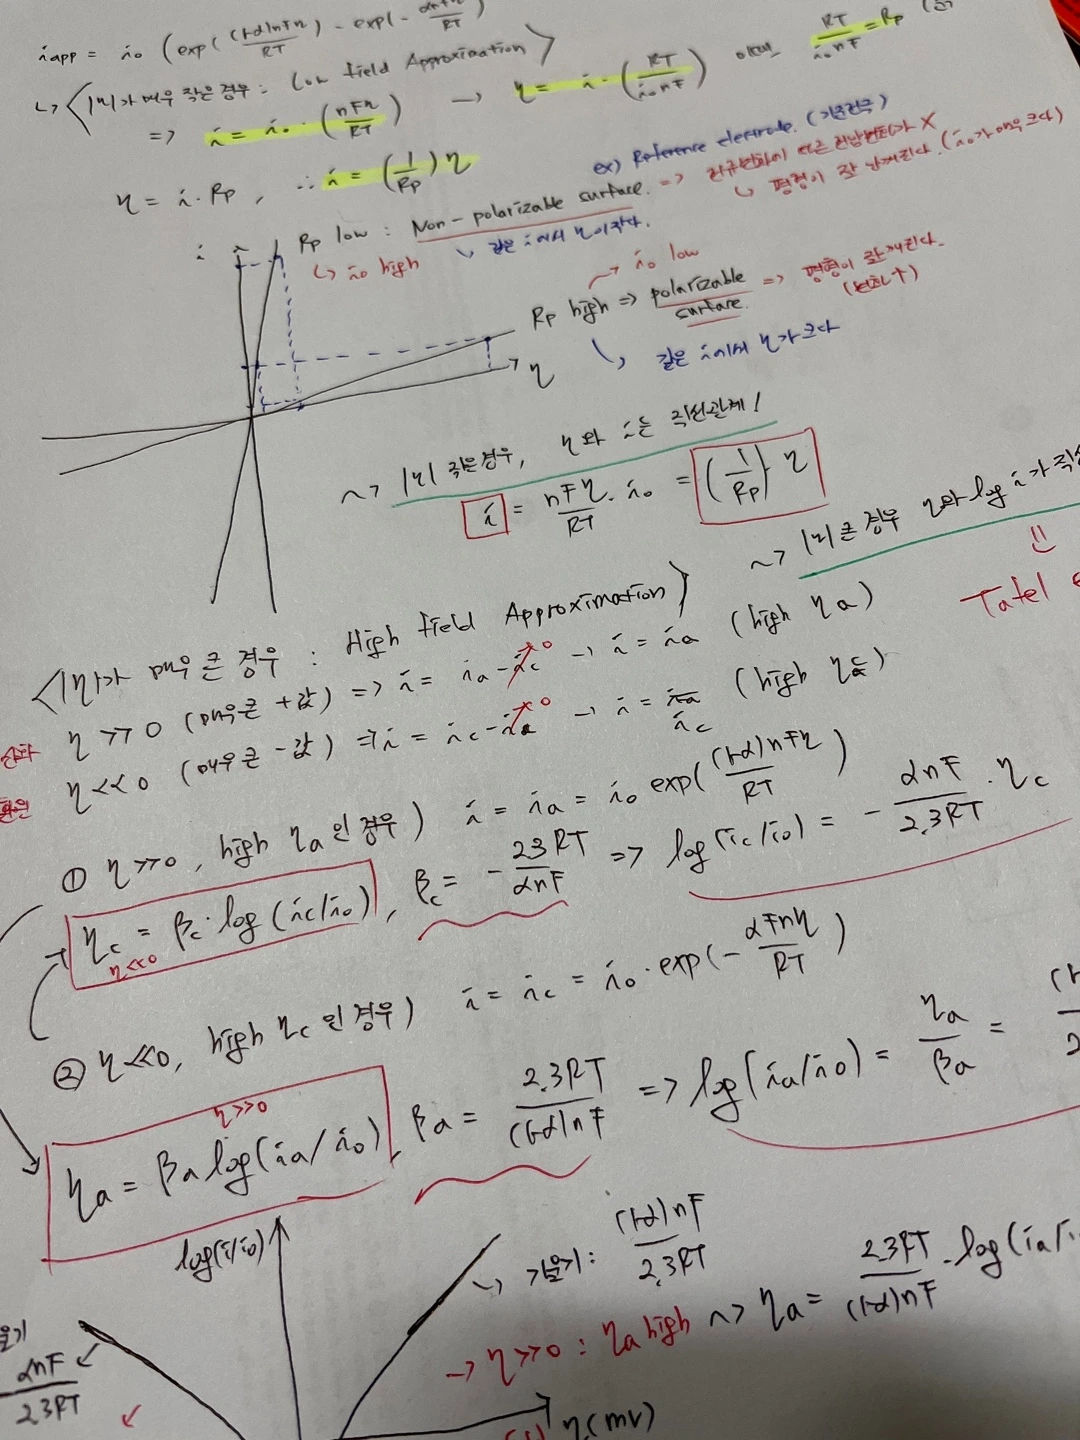 iapp = i₀ (exp((1-α)nFη/RT) - exp(-αnFη/RT))
↳ <|η|가 매우 작은 경우 : Low field Approximation>
=> i = i₀ · (nFη/RT) → η = i · (RT/i₀nF) 이때, RT/i₀nF = Rp
η = i · Rp , ∴ i = (1/Rp) η
ex) Reference electrode. (기준전극)
Rp low : Non-polarizable surface. => 전류변화에 따른 전압변화가 X
↳ i₀ high
↳ 같은 i에서 η이 작다.
↳ 평형이 잘 안깨진다. (i₀가 매우 크다)
i
→ i₀ low
Rp high => polarizable surface. => 평형이 잘 깨진다.
(변화↑)
↳ 같은 i에서 η가 크다
η
~> |η| 작은 경우, η와 i는 직선관계!
i = nFη/RT · i₀ = (1/Rp) η
~> |η| 큰 경우 η와 log i가 직선
Tafel
<|η|가 매우 큰 경우 : High field Approximation>
산화 η >> 0 (매우 큰 +값) => i = ia - ic⁰ → i = ia (high ηa)
환원 η << 0 (매우 큰 -값) => i = ic - ia⁰ → i = ia ic (high ηc)
① η >> 0 , high ηa인 경우) i = ia = i₀ exp((1-α)nFη/RT)
ηc = βc · log(ic/i₀) , βc = - 2.3RT/αnF => log(ic/i₀) = - αnF/2.3RT · ηc
η<<0
② η << 0, high ηc인 경우) i = ic = i₀ · exp(- αFnη/RT)
η>>0
ηa = βa log(ia/i₀) , βa = 2.3RT/(1-α)nF => log(ia/i₀) = ηa/βa =
log(i/i₀)
↳ 기울기 : (1-α)nF/2.3RT
→ η >> 0 : ηa high ~> ηa = 2.3RT/(1-α)nF · log(ia/
αnF/2.3RT
η(mV)